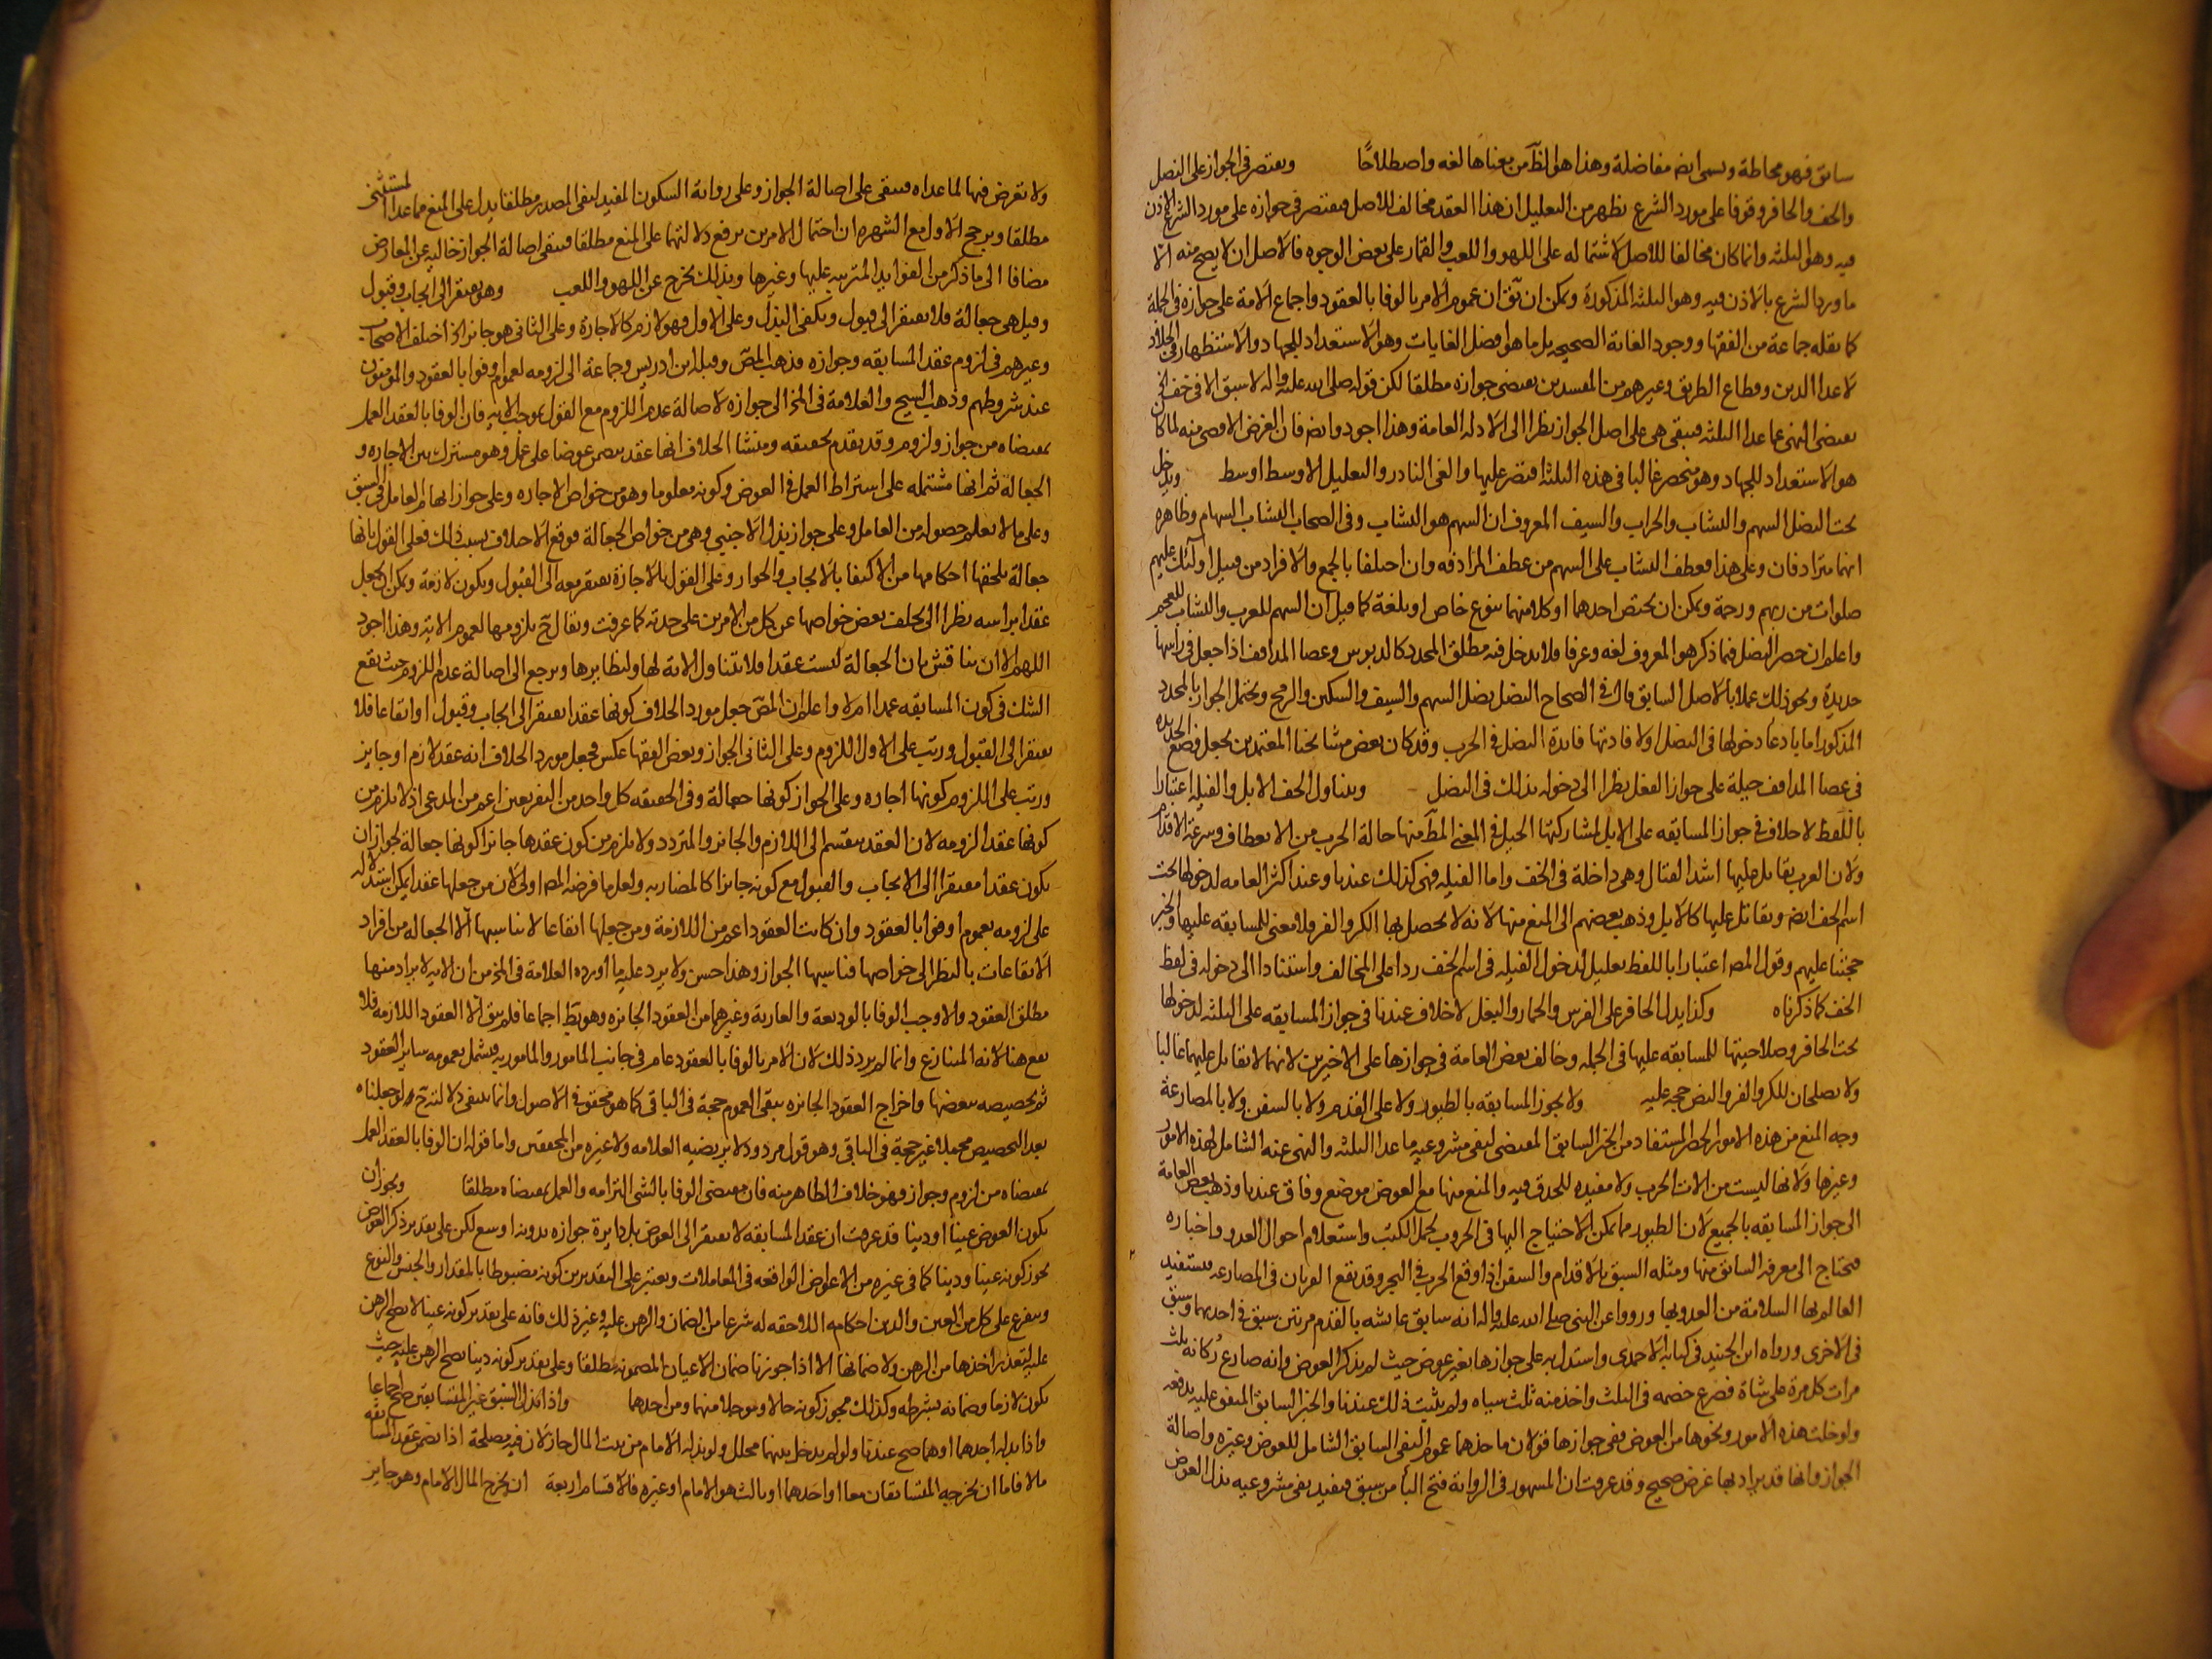 سابق فهو محاطة ويسمى ايض مفاضلة وهذا هو الظآ من معناها لغه واصطلاحًا ويقتصر في الجواز على النصل
والخف والحافر وقوفا على مورد الشرع يظهر من التعليل ان هذا العقد مخالف للاصل فيقتصر في جوازه على مورد الشرع الاذن
فيه وهو الثلثه وانما كان مخالفا للاصل لاشتماله على اللهو واللعب والقمار على بعض الوجوه فالاصل ان لا يصح منه الا
ما ورد الشرع بالاذن فيه وهو الثلثه المذكورة ويمكن ان يق ان عموم الامر بالوفا بالعقود واجماع الامة على جوازه في الجملة
كما نقله جماعة من الفقها ووجود الغاية الصحيحه بل ما هو افضل الغايات وهو الاستعداد للجهاد والاستظهار في الجلاد
لاعدا الدين وقطاع الطريق وغيرهم من المفسدين يقتضى جوازه مطلقا لكن قوله صلى الله عليه واله لا سبق الا في خف الخ
يقتضى النهى عما عدا الثلثه فيبقى هى على اصل الجواز نظرا الى الادله العامة وهذا اجود وايض فان الغرض الاقصى منه لما كان
هو الاستعداد للجهاد وهو منحصر غالبا في هذه الثلثة اقتصر عليها والغى النادر والتعليل الاوسط اوسط ويدخل
تحت النصل السهم والنشاب والحراب والسيف المعروف ان السهم هو النشاب وفى الصحاب النشاب السهام وظاهره
انهما مترادفان وعلى هذا فعطف النشاب على السهم من عطف المرادفه وان اختلفا بالجمع والافراد من قبيل اولئك عليهم
صلوات من ربهم ورحمة ويمكن ان يختص احدهما او كلا منهما بنوع خاص او بلغة كما قيل ان السهم للعرب والنشاب للعجم
واعلم ان حصر النصل فيما ذكر هو المعروف لغه وعرفا فلا يدخل فيه مطلق المحدد كالدبوس وعصا المدافف اذا جعل في راسها
حديدة ونحو ذلك عملا بالاصل السابق قال في الصحاح النصل نصل السهم والسيف والسكين والرمح ويحتمل الجواز بالمحدد
المذكور اما بادعا دخولها في النصل او لافادتها فائدة النصل في الحرب وقد كان بعض مشايخنا المعتمدين يجعل وضع الحديده
في عصا المدافف حيلة على جواز الفعل نظرا الى دخوله بذلك في النصل ويتناول الخف الابل والفيله اعتبارا
باللفظ لا خلاف في جواز المسابقه على الابل لمشاركتها الخيل في المعنى المط منها حالة الحرب من الانعطاف وسرعة الاقدام
ولان العرب تقاتل عليها اشد القتال وهى داخلة في الخف واما الفيله فهى كذلك عندنا وعند اكثر العامه لدخولها تحت
اسم الخف ايض وتقاتل عليها كالابل وذهب بعضهم الى المنع منها لانه لا يحصل بها الكر والفر فلا معنى للمسابقه عليها والخبر
حجتنا عليهم وقول المص اعتبارا باللفظ تعليل لدخول الفيله في اسم الخف ردا على المخالف واستنادا الى دخوله في لفظ
الخف كما ذكرناه وكذا يدل الحافر على الفرس والحمار والبغل لا خلاف عندنا في جواز المسابقه على الثلثه لدخولها
تحت الحافر وصلاحيتها للمسابقه عليها في الجمله وخالف بعض العامة في جوازها على الاخيرين لانهما لا تقاتل عليهما غالبا
ولا تصلحان للكر والفر والنص حجه عليه ولا يجوز المسابقه بالطيور ولا على القدم ولا بالسفن ولا بالمصارعة
وجه المنع من هذه الامور الحصر المستفاد من الخبر السابق المقتضى لنفى مشروعيه ما عدا الثلثه والنهى عنه الشامل لهذه الامور
وغيرها ولانها ليست من الات الحرب ولا مفيده للحذق فيه والمنع منها مع العوض موضع وفاق عندنا وذهب بعض العامة
الى جواز المسابقه بالجميع لان الطيور مما يمكن الاحتياج اليها في الحروب لحمل الكتب واستعلام احوال العدو واخباره
فيحتاج الى معرفه السابق منها ومثله السبق بالاقدام والسفن اذا وقع الحرب في البحر وقد تقع القران في المصارعه فيستفيد
العالم بها السلامة من العدو بها ورووا عن النبى صلى الله عليه واله انه سابق عايشه بالقدم مرتين سبق في احديهما وسبق
في الاخرى ورواه ابن الجنيد في كتابه الاحمدى واستدل به على جوازها بغير عوض حيث لم يذكر العوض وانه صارع رُكانه ثلث
مرات كل مرة على شاة فصرع خصمه في الثلث واخذ منه ثلث شياه ولم يثبت ذلك عندنا والخبر السابق المتفق عليه يدفعه
ولو خلت هذه الامور ونحوها من العوض ففى جوازها قولان ماخذهما عموم النفى السابق الشامل للعوض وغيره واصالة
الجواز وانها قد يراد بها غرض صحيح وقد عرفت ان المشهور في الرواية فتح البا من سبق فيفيد نفى مشروعيه بذل العوض
ولا تعرض فيها لما عداه فيبقى على اصالة الجواز وعلى رواية السكون المفيد لنفى المصدر مطلقا يدل على المنع مما عدا المستثنى
مطلقا ويرجح الاول مع الشهره ان احتمال الامرين يرفع دلالتها على المنع مطلقا فيبقى اصالة الجواز خاليه عن المعارض
مضافا الى ما ذكر من الفوايد المترتبه عليها وغيرها وبذلك يخرج عن اللهو واللعب وهو يفتقر الى ايجاب وقبول
وقيل هى جعالة فلا يفتقر الى قبول ويكفى البذل وعلى الاول فهو لازم كالاجارة وعلى الثانى هو جائز الخ اختلف الاصحاب
وغيرهم في لزوم عقد المسابقه وجوازه فذهب المص وقبله ابن ادريس وجماعة الى لزومه لعموم اوفوا بالعقود والمومنون
عند شروطهم وذهب الشيخ والعلامة في المخ الى جوازه لاصالة عدم اللزوم مع القول بموجب الايه فان الوفا بالعقد العمل
بمقتضاه من جواز ولزوم وقد تقدم تحقيقه ومنشا الخلاف انها عقد يتضمن عوضا على عمل وهو مشترك بين الاجاره و
الجعالة ثم انها مشتمله على اشتراط العمل في العوض وكونه معلوما وهو من خواص الاجاره وعلى جواز ابهام العامل في السبق
وعلى ما لا يعلم حصوله من العامل وعلى جواز بذل الاجنبي وهى من خواص الجعالة فوقع الاختلاف بسبب ذلك فعلى القول بانها
جعالة يلحقها احكامها من الاكتفا بالايجاب والجواز وعلى القول بالاجارة يفتقر معه الى القبول ويكون لازمة ويمكن ان يجعل
عقدا براسه نظرا الى تخلف بعض خواصها عن كل من الامرين على حدته كما عرفت ويقال ح بلزومها لعموم الاية وهذا اجود
اللهم الا ان يناقش بان الجعالة ليست عقدا فلا يتناول الاية لها ولنظايرها ويرجع الى اصالة عدم اللزوم حيث يقع
الشك في كون المسابقه عقدا ام لا واعلم ان المص جعل مورد الخلاف كونها عقدا يفتقر الى ايجاب وقبول او ايقاعا فلا
يفتقر الى القبول ورتب على الاول اللزوم وعلى الثانى الجواز وبعض الفقها عكس فجعل مورد الخلاف انه عقد لازم او جايز
ورتب على اللزوم كونها اجاره وعلى الجواز كونها جعالة وفى الحقيقه كل واحد من التفريعين اعم من المدعى اذ لا يلزم من
كونها عقدا لزومه لان العقد ينقسم الى اللازم والجائز والمتردد ولا يلزم من كون عقدها جائزا كونها جعالة لجواز ان
يكون عقدا مفتقرا الى الايجاب والقبول مع كونه جائزا كالمضاربه ولعل ما فرضه المص اولى لان من جعلها عقدا يمكن استدلاله
على لزومه بعموم اوفوا بالعقود وان كانت العقود اعم من اللازمة ومن جعلها ايقاعا لا يناسبها الا الجعاله من افراد
الايقاعات بالنظر الى خواصها فناسبها الجواز وهذا حسن ولا يرد عليه ما اورده العلامة في المخ من ان الايه لا يراد منها
مطلق العقود والا وجب الوفا بالوديعة والعارية وغيرهما من العقود الجائزه وهو بط اجماعا فلم يبق الا العقود اللازمه فلا
يقع هنا لانه المتنازع وانما لم يرد ذلك لان الامر بالوفا بالعقود عام في جانب المامور والمامور به فيشمل بعمومه ساير العقود
ثم تخصيصه ببعضها واخراج العقود الجائزه يبقى العموم حجة في الباقى كما هو محقق في الاصول وانما ينتفى دلالته ح لو جعلناه
بعد التخصيص مجملا غير حجة في الباقى وهو قول مردود لا يرتضيه العلامه ولا غيره من المحققين واما قوله ان الوفا بالعقد العمل
بمقتضاه من لزوم وجواز فهو خلاف الظاهر منه فان مقتضى الوفا بالشى التزامه والعمل بمقتضاه مطلقا ويجوز ان
يكون العوض عينا او دينا قد عرفت ان عقد المسابقه لا يفتقر الى العوض بل دايرة جوازه بدونه اوسع لكن على تقدير ذكر العوض
يجوز كونه عينا ودينا كما في غيره من الاعواض الواقعه في المعاملات ويعتبر على التقديرين كونه مضبوطا بالمقدار والجنس والنوع
ويتفرع على كل من العين والدين احكامه اللاحقه له شرعا من الضمان والرهن عليه وغير ذلك فانه على تقدير كونه عينا لا يصح الرهن
عليه لتعذر اخذها من الرهن ولا ضمانها الا اذا جوزنا ضمان الاعيان المضمونه مطلقا وعلى تقدير كونه دينا يصح الرهن عليه حيث
يكون لازما وضمانه بشرطه وكذلك يجوز كونه حالا وموجلا منهما ومن احدهما واذا بذل السبق غير المتسابقين صح اجماعا
واذا بذله احدهما او هما صح عندنا ولو لم يدخل بينهما محلل ولو بذله الامام من بيت المال جاز لان فيه مصلحة اذا تضمن عقد المسابقه
مالا فاما ان يخرجه المتسابقان معا او احدهما او ثالث هو الامام او غيره فالاقسام اربعة ان يخرج المال الامام وهو جايز